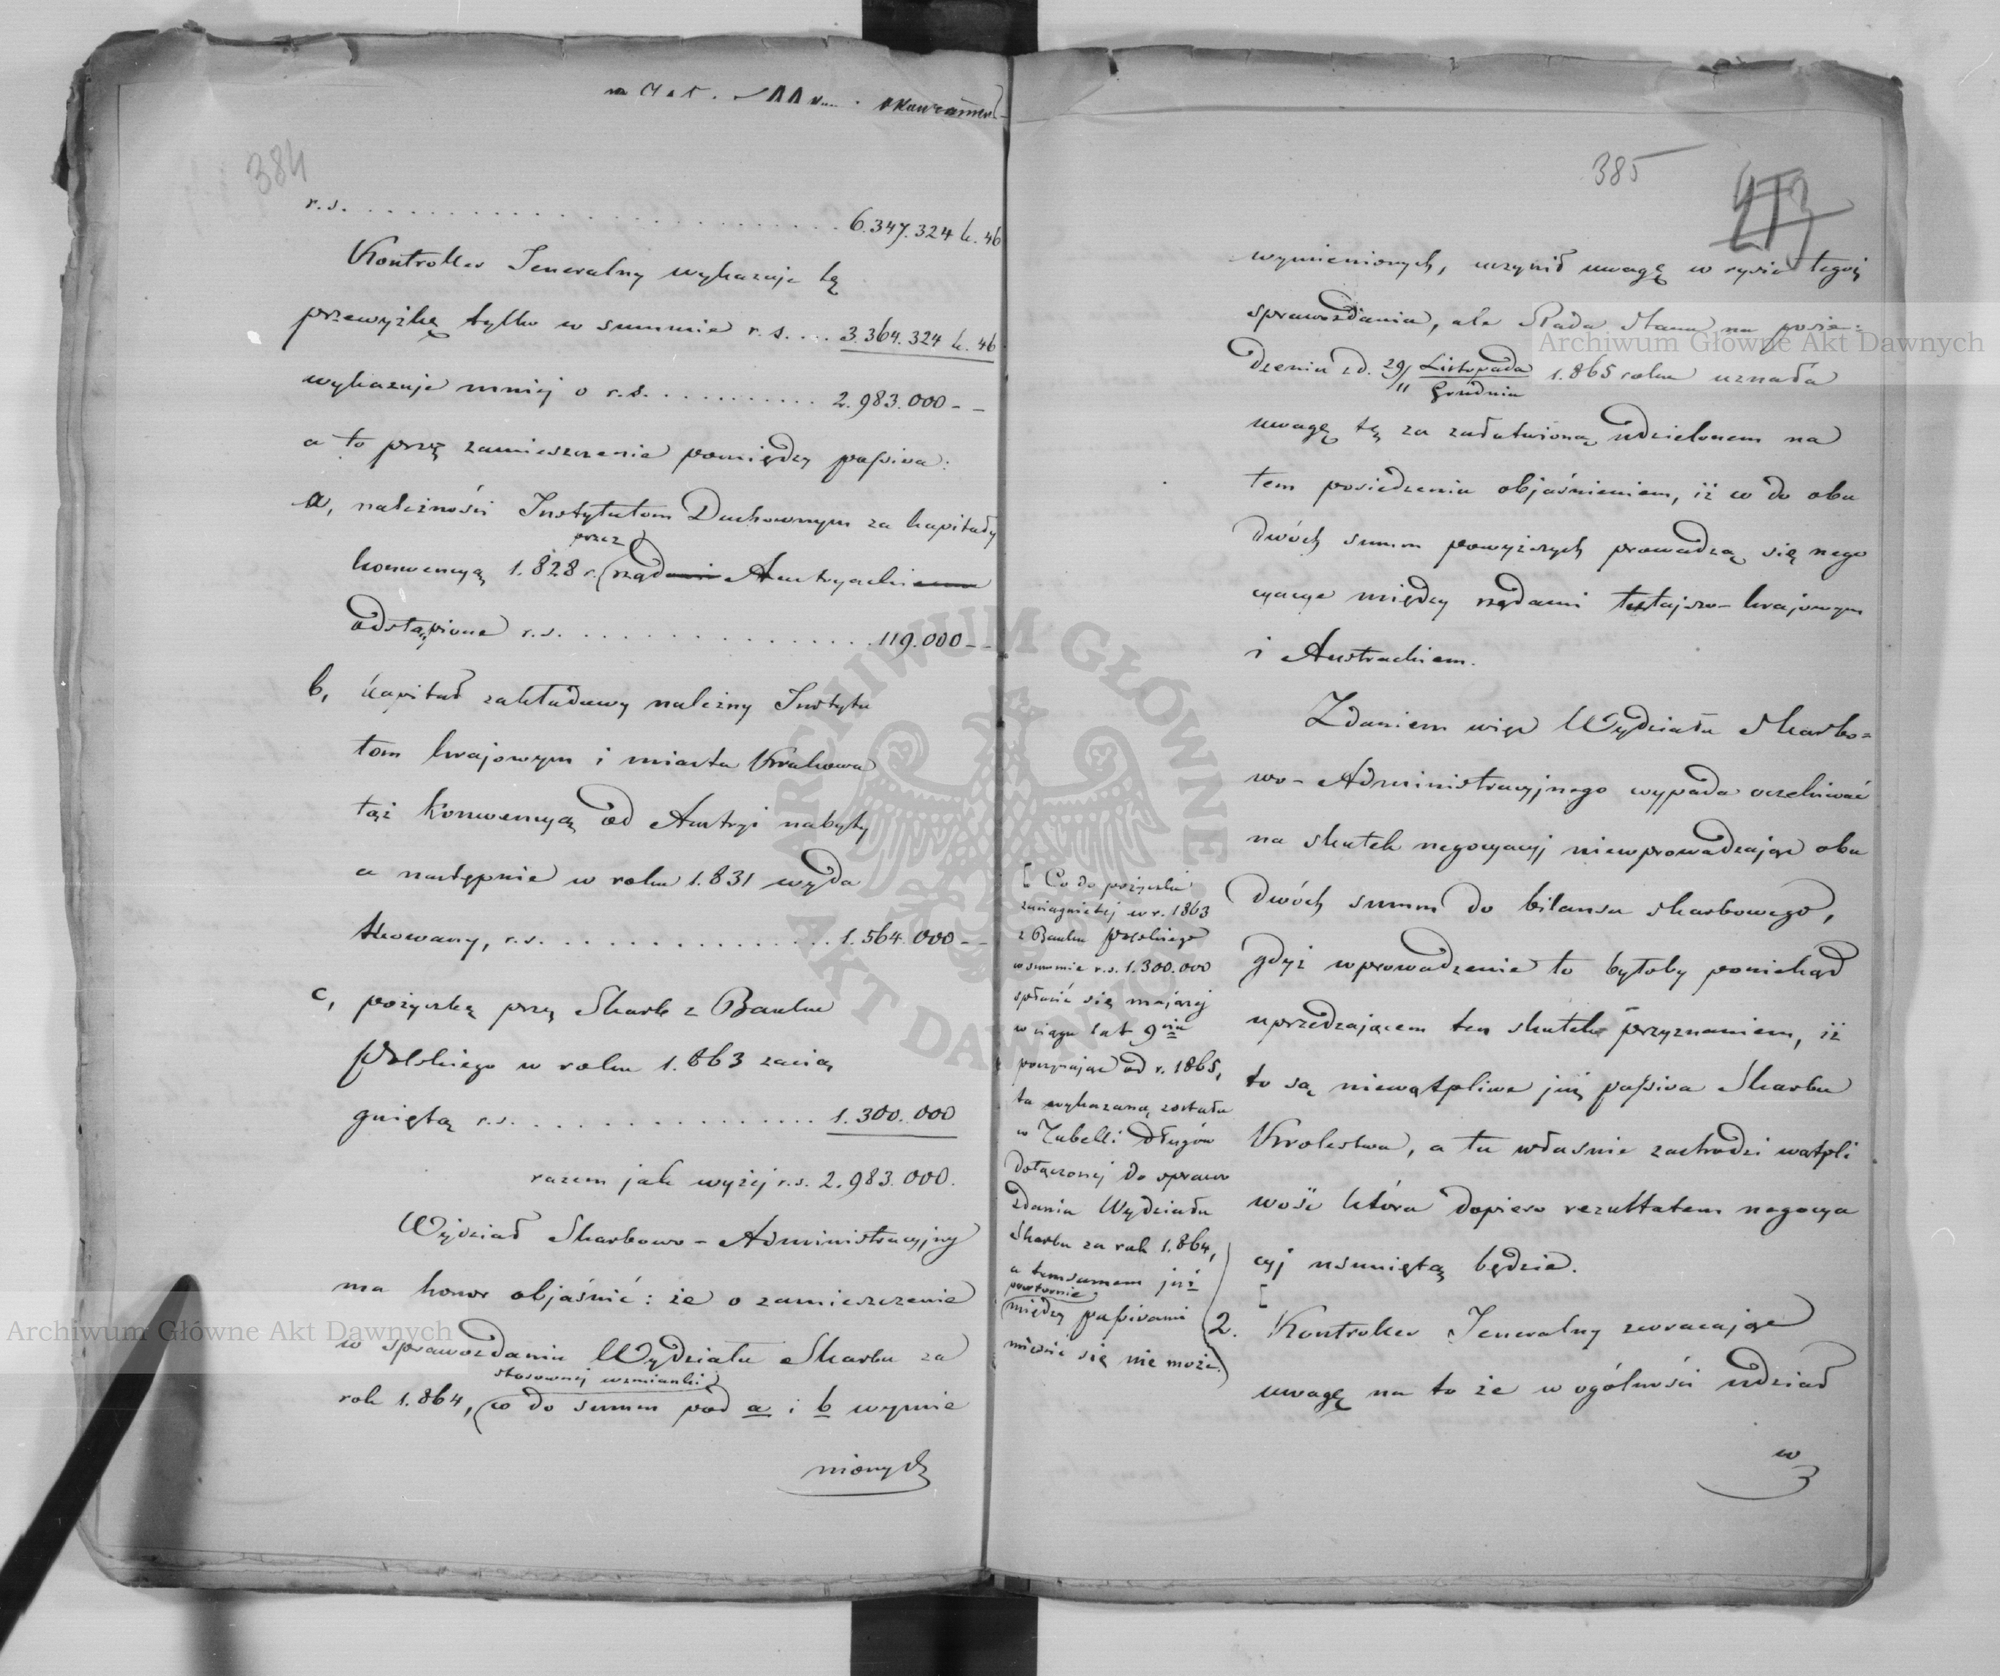 384
r.s. . . . . . . . . . . . . . . . . 6.347.324 k. 46
Kontroller Jeneralny wykazuje tę
przewyżkę tylko w summie r.s. . . . 3.364.324 k. 46
wykazuje mniej o r.s. . . . . . . . . . . 2.983.000 - -
a to przez zamieszczenie pomiędzy passiva:
a, należności Instytutom Duchownym za kapitały
przez
konwencyą 1.828 r. (rządami Austryackiem
odstąpione r.s. . . . . . . . . . . . . . . . 119.000 - -
b, kapitał zakładowy należny Instytu
tom krajowym i miasta Krakowa
tąż konwencyą od Austryi nabyty
a następnie w roku 1.831 wyda
tkowany, r.s. . . . . . . . . . . . . . . 1.564.000 - -
c, pożyczkę przez Skarb z Banku
Polskiego w roku 1.863 zacią
gniętą r.s. . . . . . . . . . . . . . . . 1.300.000
razem jak wyżej r.s. 2.983.000.
Wydział Skarbowo - Administracyjny
ma honor objaśnić: że o zamieszczenie
w sprawozdaniu Wydziału Skarbu za
stosownej wzmianki
rok 1.864, (co do summ pod a i b wymie
nionych
385
wymienionych, uczynił uwagę w rysie tegoż
sprawozdania, ale Rada Stanu na posie-
dzeniu z d. 29/11 Listopada/Grudnia 1.865 roku uznała
uwagę tę za załatwioną udzielonem na
tem posiedzeniu objaśnieniem, iż co do obu
dwóch summ powyższych prowadzą się nego
cyacye między rządami tutajszo-krajowym
i Austrackiem.
Zdaniem więc Wydziału Skarbo=
wo-Administracyjnego wypada oczekiwać
na skutek negocyacyj niewprowadzając obu
dwóch summ do bilansu skarbowego,
gdyż wprowadzenie to byłoby poniekąd
uprzedzającem ten skutek przyznaniem, iż
to są niewątpliwe już passiva Skarbu
Królestwa, a tu właśnie zachodzi wątpli
wość która dopiero rezultatem negocya
cyj usuniętą będzie.
[
2. Kontroller Jeneralny zwracając
uwagę na to że w ogólności udział
w
[ Co do pożyczki
zaciągniętej w r. 1863
z Banku Polskiego
w summie r.s. 1.300.000
spłacić się mającej
w ciągu lat 9ciu
poczynając od r. 1865,
ta wykazaną została
w Tabelli długów
dołączonej do sprawo
zdania Wydziału
Skarbu za rok 1.864,
a temsamem już
powtórnie
(między passivami
mieścić się nie może.)
Archiwum Główne Akt Dawnych
Archiwum Główne Akt Dawnych
ARCHIWUM GŁÓWNE AKT DAWNYCH